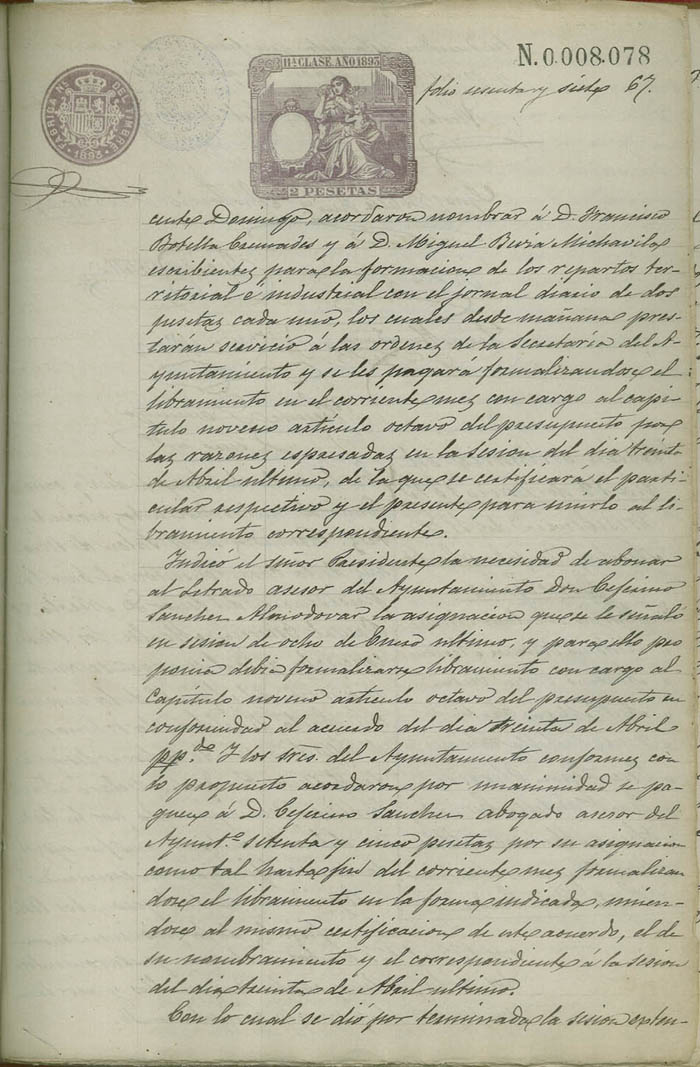 N.0.008.078
11ª CLASE. AÑO 1893
FABRICA NL. DEL TIMBRE
1893
2 PESETAS
folio sesenta y siete 67.
ente Domingo, acordaron nombrar á D. Francisco
Botella Cremades y á D. Miguel Michavila
escribientes para la formacion de los repartos ter-
ritorial é industrial con el jornal diario de dos
pesetas cada uno, los cuales desde mañana pres-
tarán servicio á las ordenes de la Secretaría del A-
yuntamiento y se les pagara formalizandose el
libramiento en el corriente mes con cargo al capi-
tulo noveno artículo octavo del presupuesto por
las razones espresadas en la sesion del dia treinta
de Abril ultimo, de la que se certificará el parti-
cular respectivo y el presente para unirlo al li-
bramiento correspondiente.
Indicó el señor Presidente la necesidad de abonar
al Letrado asesor del Ayuntamiento Don Ceferino
Sanchez Almodovar la asignacion que se le señaló
en sesion de ocho de Enero ultimo, y para ello pro
ponia debia formalizarse libramiento con cargo al
Capítulo noveno artículo octavo del presupuesto en
conformidad al acuerdo del dia treinta de Abril
pp.do Y los sres. del Ayuntamiento conformes con
lo propuesto acordaron por unanimidad se pa-
guen á D. Ceferino Sanchez abogado asesor del
Ayunt.o setenta y cinco pesetas por su asignacion
como tal hasta fin del corriente mes formalizan
dose el libramiento en la forma indicada, unien-
dose al mismo certificacion de este acuerdo, el de
su nombramiento y el correspondiente á la sesion
del dia treinta de Abril ultimo.
Con lo cual se dió por terminada la sesion esten-